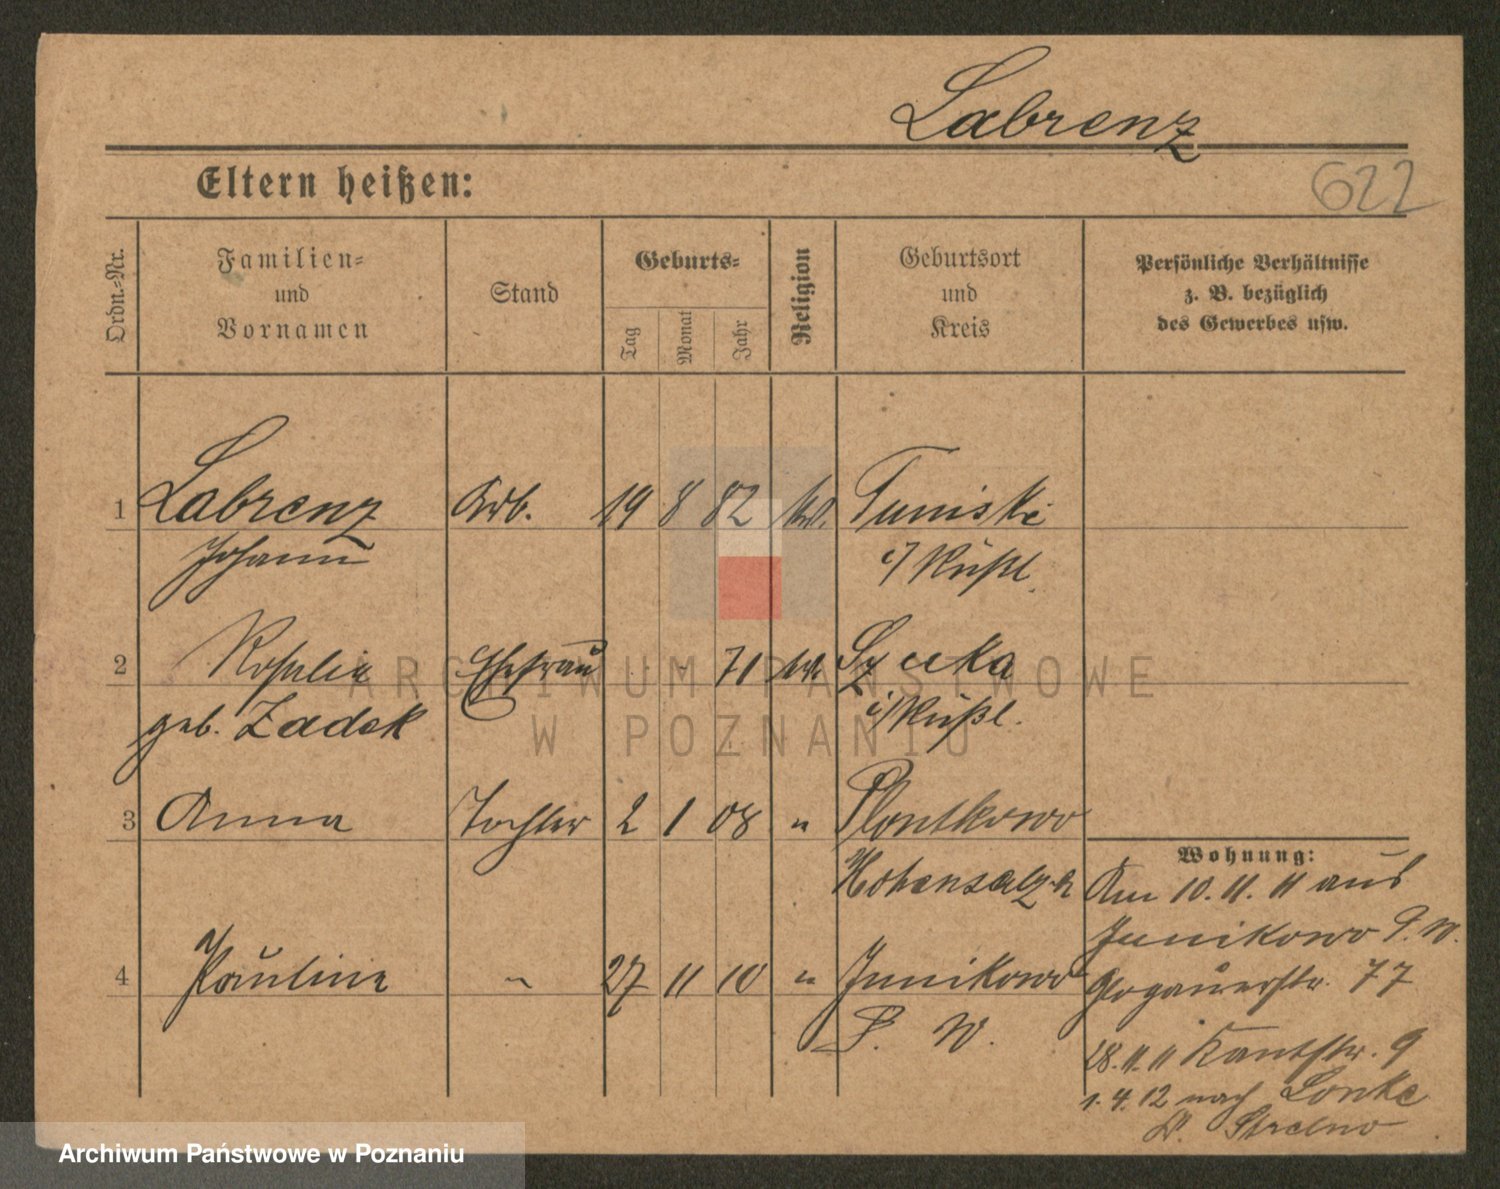 Labrenz
622
Eltern heißen:
Ordn.-Nr.
Familien-
und
Vornamen
Stand
Geburts-
Tag
Monat
Jahr
Religion
Geburtsort
und
Kreis
Persönliche Verhältnisse
z. B. bezüglich
des Gewerbes usw.
1 Labrenz Arb. 19 8 82
Johann
2 Ehefrau 71
geb. Zadek
3 Anna Tochter 2 1 08 "
Hohensalza
4 Pauline " 27 11 10 " Junikowo
P. W.
Wohnung:
Am 10. 11. 11 aus
Junikowo P. W.
Glogauerstr. 77
28. 11. 11 Kantstr. 9
1. 4. 12 nach Lonke
Strelno
ARCHIWUM PAŃSTWOWE
W POZNANIU
Archiwum Państwowe w Poznaniu